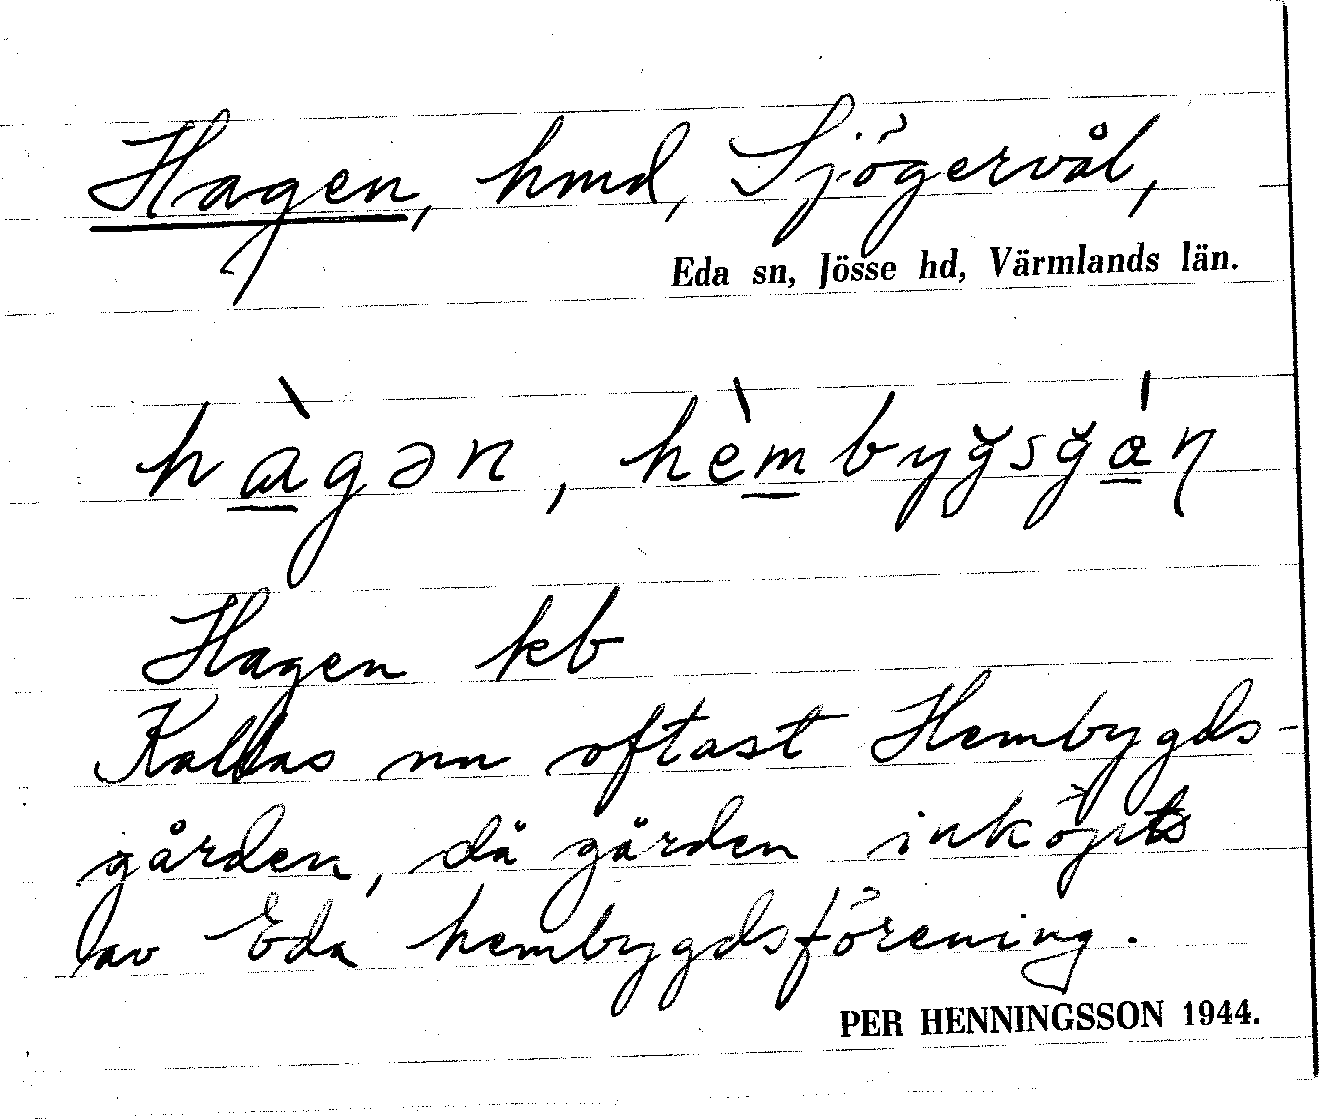 Hagen, hmd, Sjögervål,
Eda sn, Jösse hd, Värmlands län.
hàgən, hèmbyğsğáɳ
Hagen kb
Kallas nu oftast Hembygds-
gården, då gården inköpts
av Eda hembygdsförening.
PER HENNINGSSON 1944.